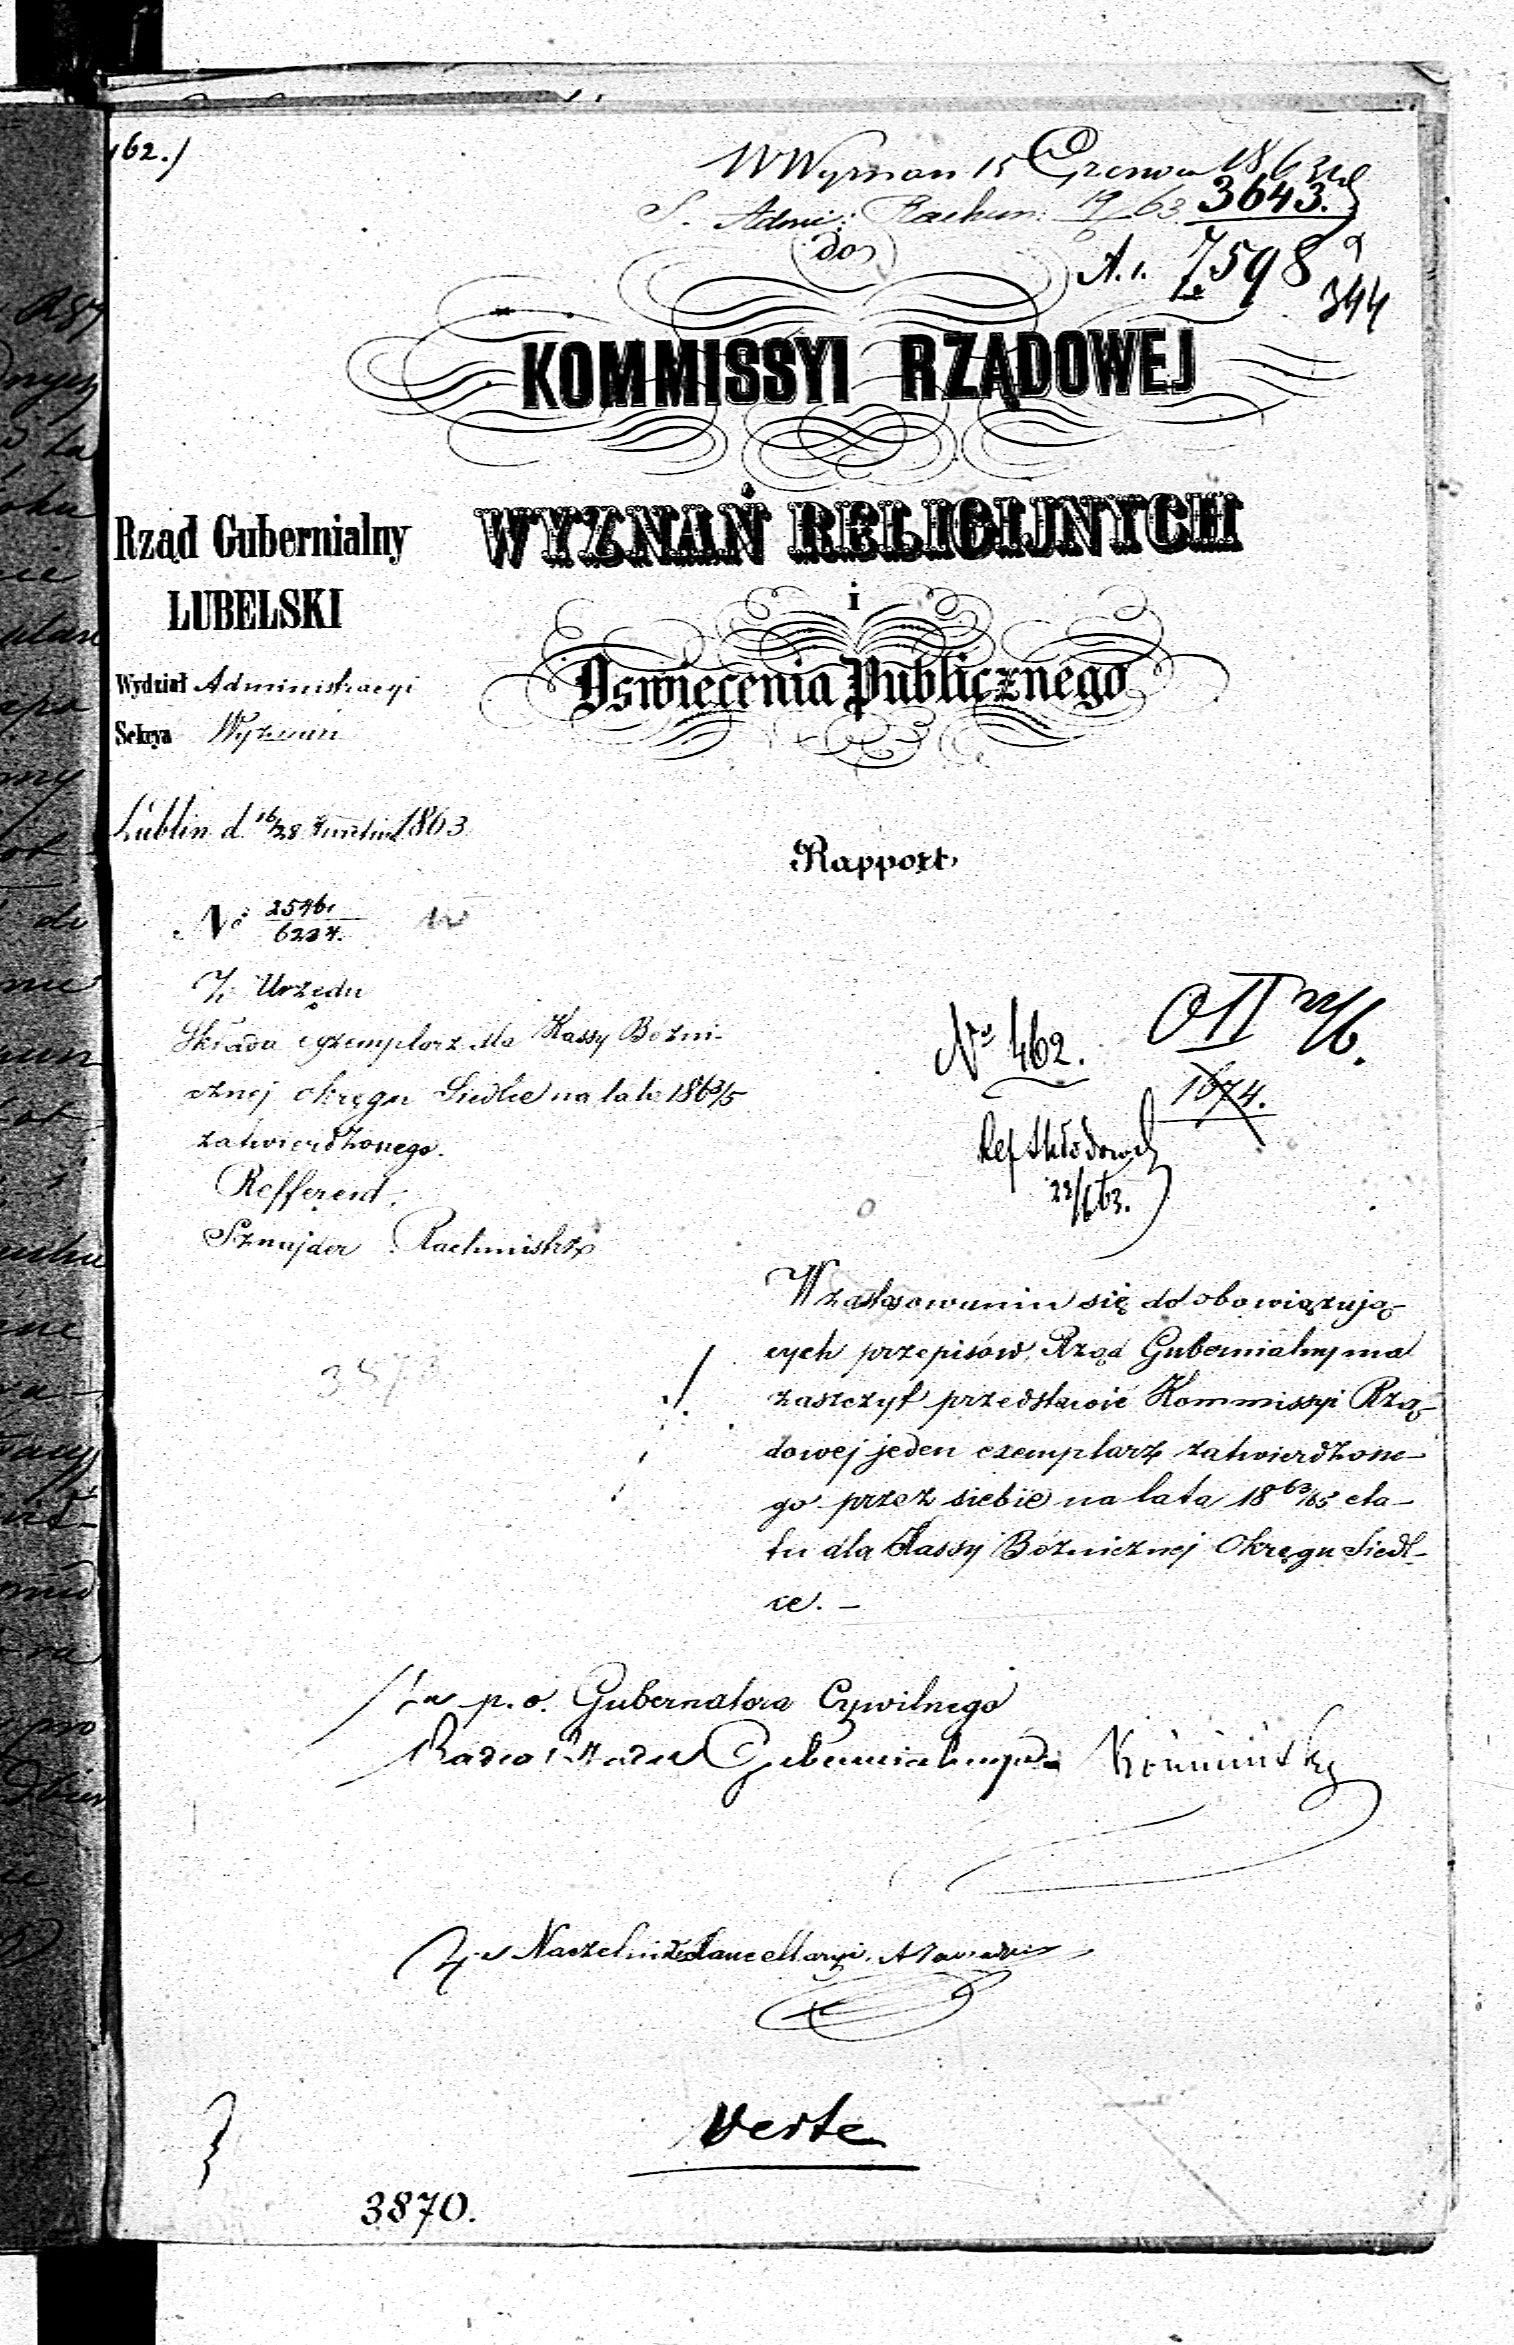 162.)
W Wyznań 15 Czerwca 1863
S. Admi: Rachun: 19/6 63. 3643.
do
A. 1. 7598
344
KOMMISSYI RZĄDOWEJ
WYZNAŃ RELIGIJNYCH
i
Oswiecenia Publicznego
Rząd Gubernialny
LUBELSKI
Wydział Administracyi
Sekcya Wyznań
Lublin d. 16/28 1863
Rapport
No 2546
Z Urzędu
Składa egzemplarz dla Kassy Bożni-
cznej okręgu Siedlce na lata 1863/5
zatwierdzonego.
Refferent:
Sznajder Rachmistrz
No 462.
1674.
Ref
23/6 63.
W zastosowaniu się do obowiązują-
cych przepisów, Rząd Gubernialny ma
zaszczyt przedstawić Kommissyi Rzą-
dowej jeden exemplarz zatwierdzone-
go przez siebie na lata 1863/65 eta-
tu dla Kassy Bóżnicznej Okręgu Siedl-
ce. –
za p. o. Gubernatora Cywilnego
Radca Rządu Gubernialnego
Naczelnik Kancellaryi
Verte
3870.